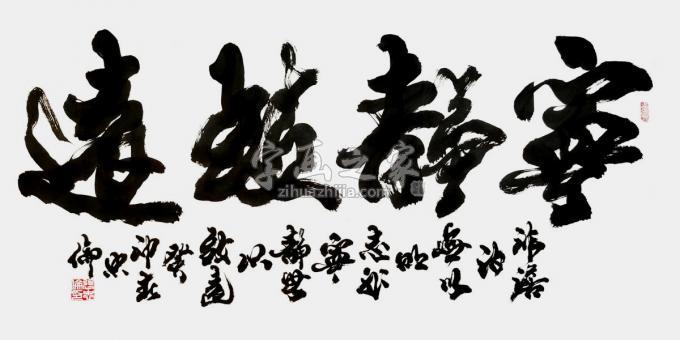 寧靜致遠
非澹泊無以明志非寧靜無以致遠
字画之家
zihuazhijia.com